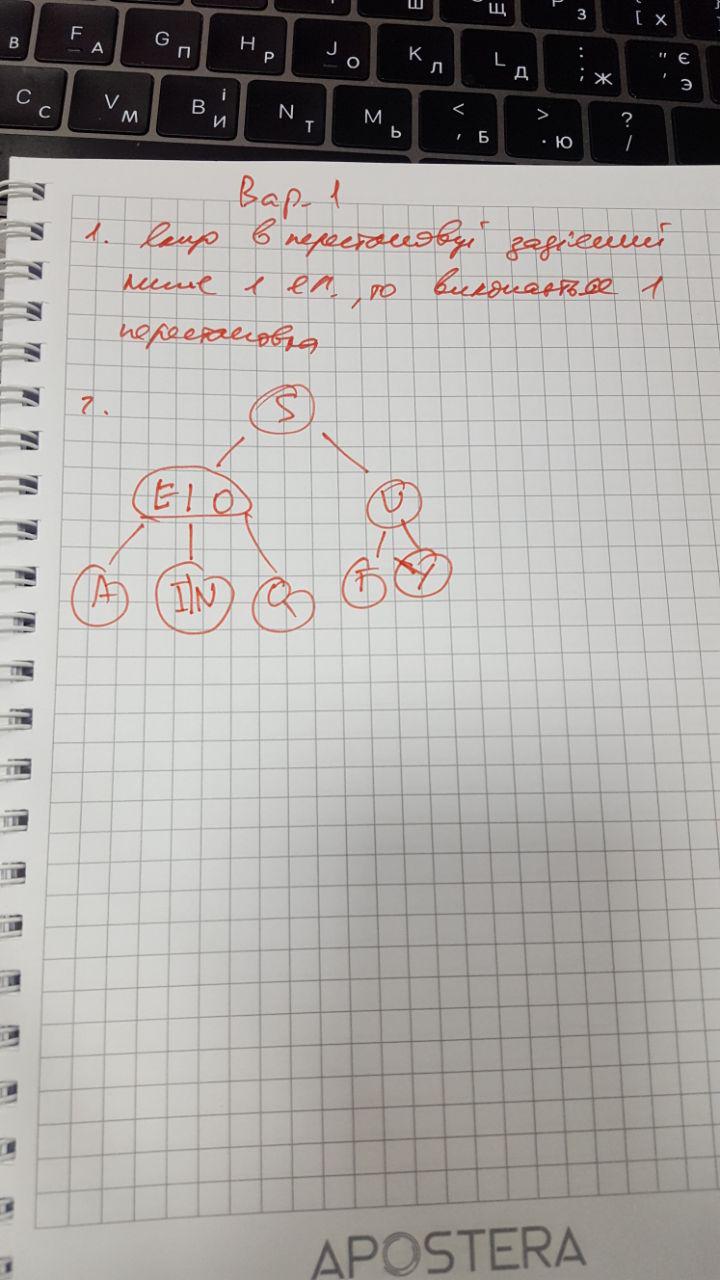 F А
G П
H Р
J О
К Л
L Д
: ; Ж
" ' Є Э
З
[ Х
Щ
В
С С
V М
В І И
N Т
М Ь
< , Б
> . Ю
? /
Вар. 1
1. Якщо в перестановці задіяний
лише 1 ел., то виконається 1
перестановка
2.
S
E | O
U
A
I|N
Q
F
Y
APOSTERA